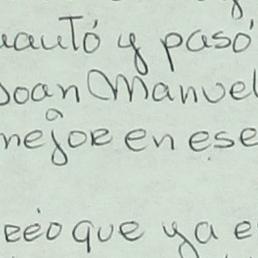 uautó y pasó
Joan Manuel
mejor en ese
reo que ya e